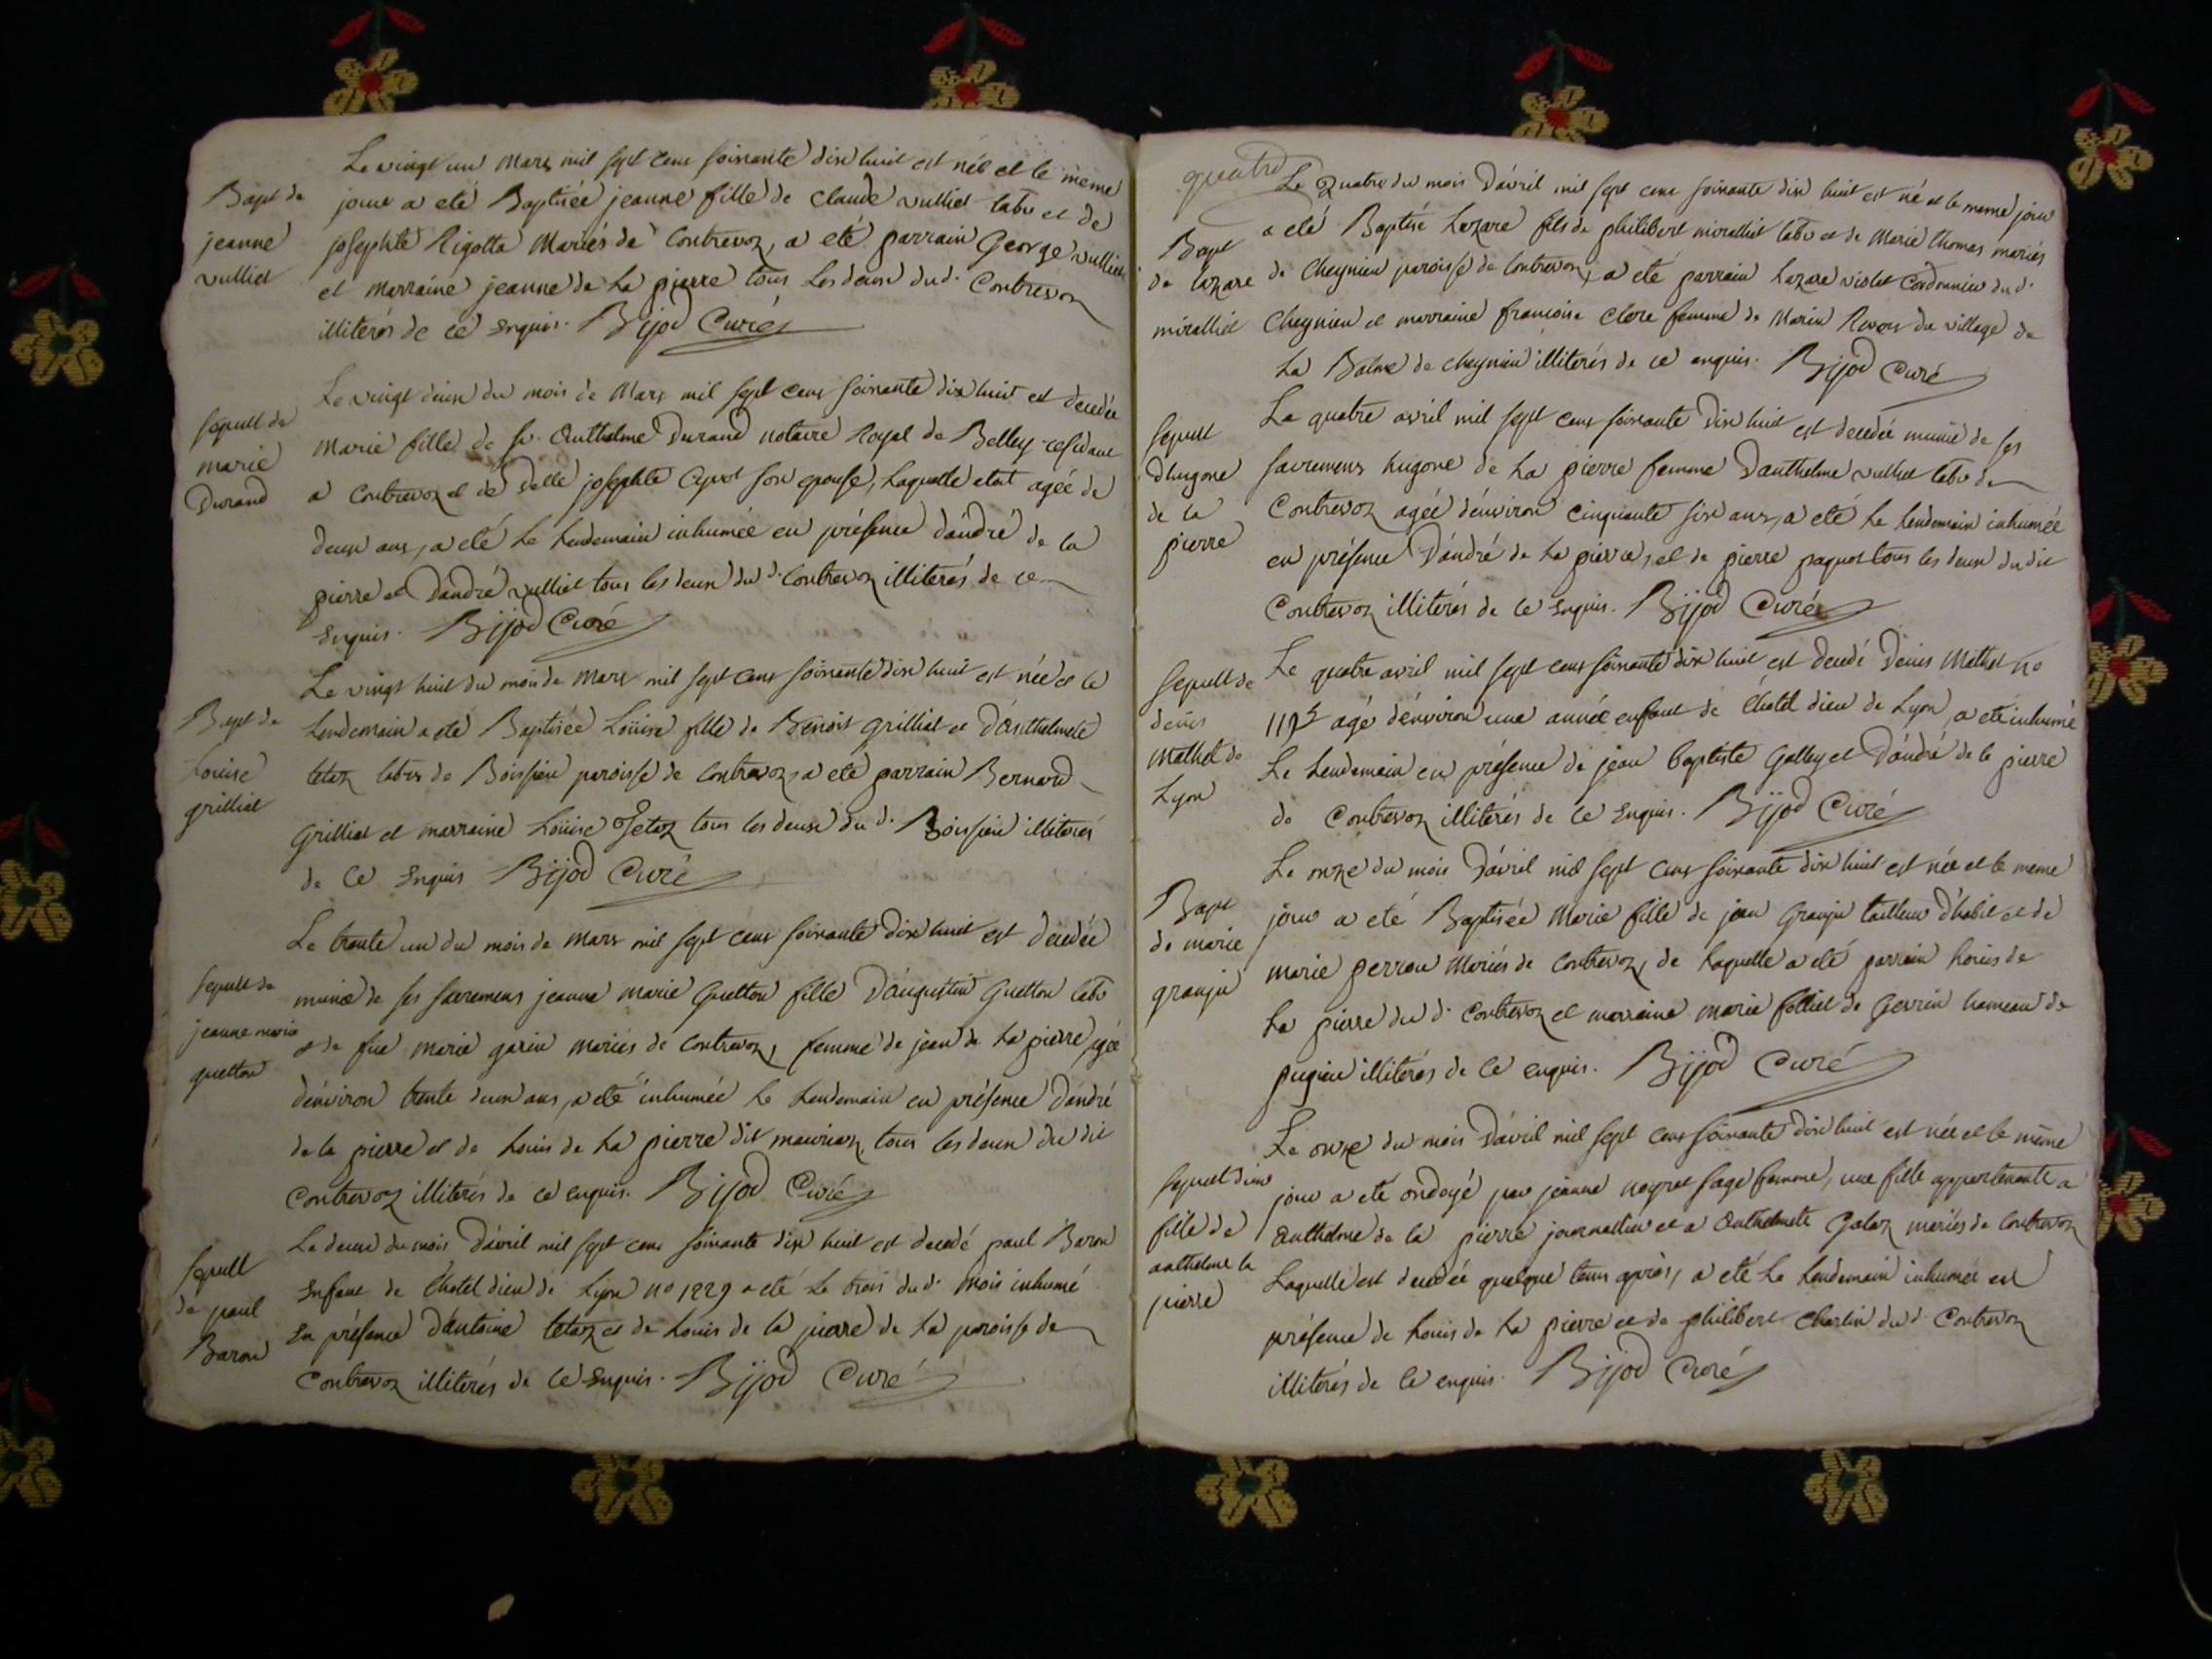 Le vingt un mars mil sept cens soixante dix huit est née et le meme
Bapt de
jeanne
vulliet
jour a eté Baptisée jeanne fille de claude vulliet labr et de
josephte Rigotta Mariés de Contrevoz, a eté parrain George vulliet
et marraine jeanne de La pierre tous Les deux dud. Contrevoz
illiterés de ce Enquis. Bijod Curé
Le vingt deux du mois de Mars mil sept cens soixante dix huit est decedée
Sepult de
marie
Durand
Marie fille de sr. Anthelme Durand notaire Royal de Belley residant
a Contrevoz et de delle josephte Cyvot son epouse, Laquelle etoit agée de
deux ans, a eté Le Lendemain inhumée en présence d'andré de la
pierre et d'andré vulliet tous les deux du d. Contrevoz illiterés de ce
Enquis. Bijod Curé
Le vingt huit du mois de Mars mil sept cens soixante dix huit est née et le
Bapt de
Louise
grilliat
Lendemain a eté Baptisée Loüise fille de Benoit grilliat et d'anthelmete
tetaz labrs de Boissieu paroisse de Contrevoz, a eté parrain Bernard
Grilliat et marraine Loüise Tetaz tous les deux du d. Boissieu illiterés
de Ce Enquis Bijod Curé
Le trente un du mois de Mars mil sept cens soixante dix huit est decedée
Sepult de
jeanne marie
guetton
munie de ses sacremens jeanne marie Guetton fille D'augustin Guetton labr
et de füe marie garin mariés de Contrevoz, femme de jean de La pierre agée
d'environ trente deux ans, a eté inhumée Le Lendemain en présence D'andré
de la pierre et de Louis de La pierre dit tous les deux du dit
Contrevoz illiterés de ce enquis. Bijod Curé
Le deux du mois d'avril mil sept cens soixante dix huit est decedé paul Baron
Sepult
de paul
Baron
Enfant de L'hotel dieu de Lyon no 1229 a eté Le trois dud. mois inhumé
En présence d'antoine tetaz et de Louis de la pierre de La paroisse de
Contrevoz illiterés de Ce Enquis. Bijod Curé
quatre
Le Quatre du mois d'avril mil sept cens soixante dix huit est né et le meme jour
Bapt
de lazare
miralliet
a eté Baptisé Lazare fils de philibert miralliet labr et de Marie thomas mariés
de Cheynieu paroisse de Contrevoz, a eté parrain Lazare violet Cordonnier du d.
Cheynieu et marraine francoise Clere femme de Marin Revoy du village de
La Balme de cheynieu illiterés de ce enquis. Bijod Curé
Le quatre avril mil sept cens soixante dix huit est decedée munie de ses
Sepult
D'hugone
de la
pierre
sacremens hugone de La pierre femme d'anthelme vulliet labr de
Contrevoz agée d'environ cinquante six ans, a eté Le Lendemain inhumée
en présence D'andré de La pierre, et de pierre paquet tous les deux du dit
Contrevoz illiterés de Ce Enquis. Bijod Curé
Le quatre avril mil sept cens soixante dix huit est decedé Denis Mathet no
Sepult de
denis
Mathet de
Lyon
agé d'environ une année enfant de L'hotel dieu de Lyon, a eté inhumé
Le Lendemain en présence de jean baptiste Galley et D'andré de la pierre
de Contrevoz illiterés de Ce Enquis. Bijod Curé
Le onze du mois d'avril mil sept cens soixante dix huit est née et le meme
Bapt
de marie
granju
jour a eté Baptisée Marie fille de jean Granju tailleur d'habit et de
marie perrau Mariés de Contrevoz, de Laquelle a eté parrain Louis de
La pierre du d. Contrevoz et marraine marie folliet de Gevrin hameau de
pugieu illiterés de Ce enquis. Bijod Curé
Le onze du mois d'avril mil sept cens soixante dix huit est née et le même
Sepult d'une
fille de
anthelme la
pierre
jour a eté ondoyé par jeanne neyret sage femme, une fille appartenante a
Anthelme de la pierre journallier et a Anthelmete Galaz mariés de Contrevoz
Laquelle est decedée quelque tems après, a eté Le Lendemain inhumée en
présence de Louis de La pierre et de philibert Charlin dud. Contrevoz
illiterés de Ce enquis. Bijod Curé